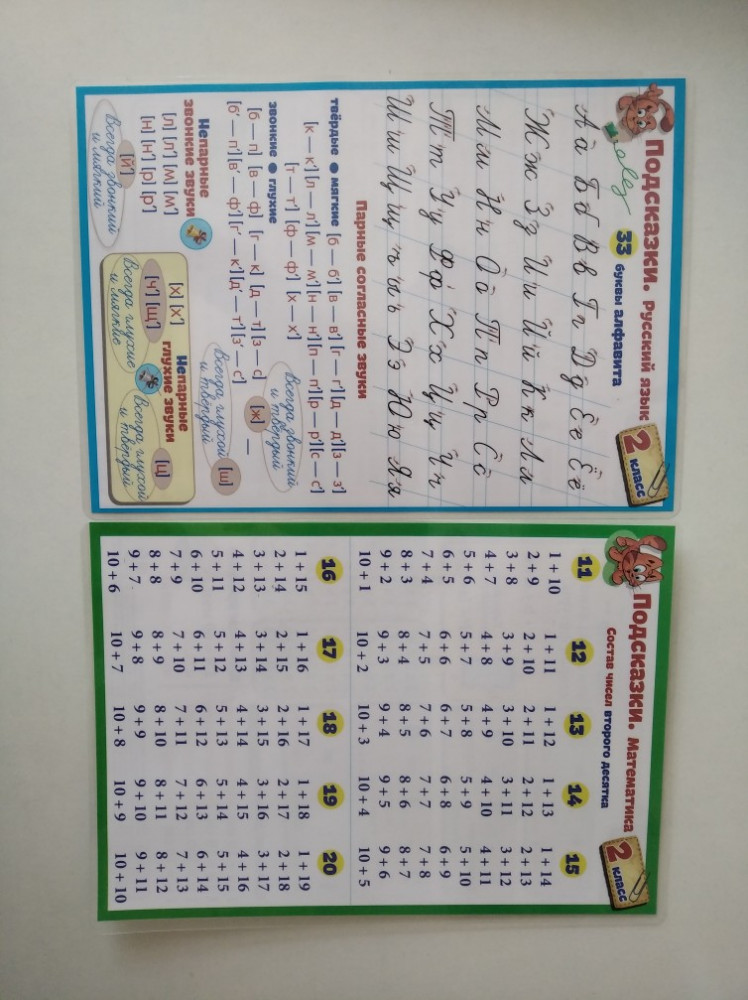 Подсказки. Русский язык
2 класс
33 буквы алфавита
Аа Бб Вв Гг Дд Ее Ёё
Жж Зз Ии Йй Кк Лл
Мм Нн Оо Пп Рр Сс
Тт Уу Фф Хх Цц Чч
Шш Щщ ъ ы ь Ээ Юю Яя
Парные согласные звуки
твёрдые ● мягкие [б — б'] [в — в'] [г — г'] [д — д'] [з — з']
[к — к'] [л — л'] [м — м'] [н — н'] [п — п'] [р — р'] [с — с']
[т — т'] [ф — ф'] [х — х']
звонкие ● глухие
Всегда звонкий
и твердый
[б — п] [в — ф] [г — к] [д — т] [з — с] [ж] —
[б' — п'] [в' — ф'] [г' — к'] [д' — т'] [з' — с'] — [ш]
Всегда глухой
и твердый
Непарные
звонкие звуки
[л] [л'] [м] [м']
[н] [н'] [р] [р']
[й']
Всегда звонкий
и мягкий
Непарные
глухие звуки
[х] [х']
[ч'] [щ']
[ц]
Всегда глухие
и мягкие
Всегда глухой
и твердый
Подсказки. Математика
2 класс
Состав чисел второго десятка
11 12 13 14 15
1 + 10 1 + 11 1 + 12 1 + 13 1 + 14
2 + 9 2 + 10 2 + 11 2 + 12 2 + 13
3 + 8 3 + 9 3 + 10 3 + 11 3 + 12
4 + 7 4 + 8 4 + 9 4 + 10 4 + 11
5 + 6 5 + 7 5 + 8 5 + 9 5 + 10
6 + 5 6 + 6 6 + 7 6 + 8 6 + 9
7 + 4 7 + 5 7 + 6 7 + 7 7 + 8
8 + 3 8 + 4 8 + 5 8 + 6 8 + 7
9 + 2 9 + 3 9 + 4 9 + 5 9 + 6
10 + 1 10 + 2 10 + 3 10 + 4 10 + 5
16 17 18 19 20
1 + 15 1 + 16 1 + 17 1 + 18 1 + 19
2 + 14 2 + 15 2 + 16 2 + 17 2 + 18
3 + 13 3 + 14 3 + 15 3 + 16 3 + 17
4 + 12 4 + 13 4 + 14 4 + 15 4 + 16
5 + 11 5 + 12 5 + 13 5 + 14 5 + 15
6 + 10 6 + 11 6 + 12 6 + 13 6 + 14
7 + 9 7 + 10 7 + 11 7 + 12 7 + 13
8 + 8 8 + 9 8 + 10 8 + 11 8 + 12
9 + 7 9 + 8 9 + 9 9 + 10 9 + 11
10 + 6 10 + 7 10 + 8 10 + 9 10 + 10